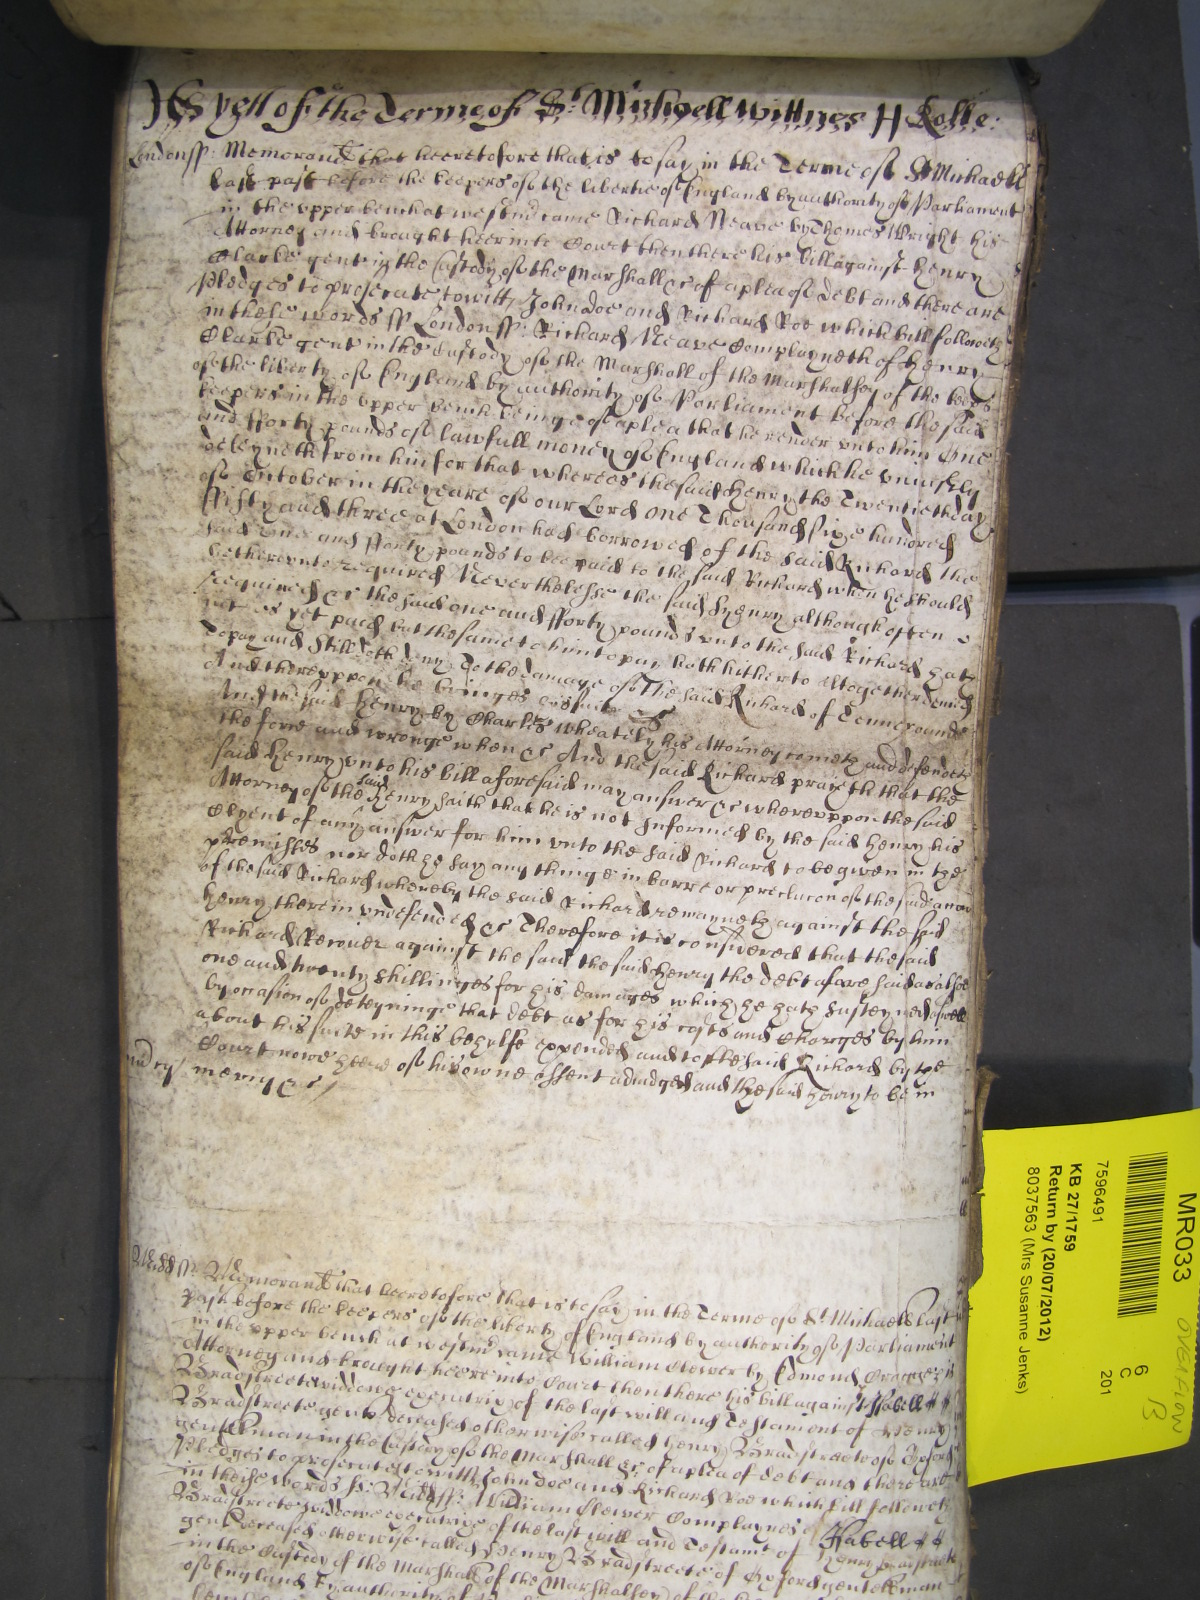 As yett of the Terme of St. Michaell Wittnes H Rolle:
London ss: Memorand that heeretofore that is to say in the Terme of St Michaell
last past before the keepers of the libertie of England by authority of Parliament
in the upper bench at westmr came Richard Neave by Thomas Wright his
Attorney and brought heere into Court then there his bill against Henry
Clarke gent in the Custody of the Marshall &c of a plea of debt and there are
pledges to prosecute towitt John Doe and Richard Roe which bill followeth
in these words ss London ss: Richard Neave Complayneth of Henry
Clarke gent in the Custody of the Marshall of the Marshalsey of the keepers
of the liberty of England by authority of Parliament before the said
keepers in the upper bench being of a plea that he render unto him One
and fforty pounds of lawfull money of England which he uniustly
deteyneth from him for that whereas the said Henry the Twentieth day
of October in the yeare of our Lord one Thousand sixe hundred
ffifty and three at London had borrowed of the said Richard the
said one and fforty pounds to bee paid to the said Richard when he should
bee thereunto required Neverthelesse the said Henry although often
required &c the said one and fforty pounds unto the said Richard hath
not as yet paid but the same to him to pay hath hitherto altogether denied
to pay and still doth deny To the damage of the said Richard of Tenn pounds
And thereuppon he bringes his suite &c
And the said Henry by Charles Wheatly his Attorney cometh and defendeth
the force and wronge when &c And the said Richard prayeth that the
said Henry unto his bill aforesaid may answer &c whereuppon the said
Attorney of the said Henry saith that he is not Informed by the said Henry his
Clyent of any answer for him unto the said Richard to be given in the
premisses nor doth he say any thinge in barre or preclucon of the said accon
of the said Richard whereby the said Richard remayneth against the said
Henry therein undefended &c Therefore it is considered that the said
Richard Recover against the said the said Henry the debt aforesaid as alsoe
one and twenty shillinges for his damages which he hath susteyned aswell
by occasion of deteyninge that debt as for his costs and Charges by him
about his suite in this behalfe expended and to the said Richard by the
Court nowe heere of his owne assent adiudged and the said Henry to be in
mercy &c
Midd ss: Memorand that heeretofore that is to say in the Terme of St Michaell last
past before the keepers of the liberty of England by authority of Parliament
in the upper bench at westmr came William Clower by Edmond his
Attorney and brought heere into Court then there his bill against Isabell
Bradstreete widdowe executrix of the last will and Testament of Henry
Bradstreete gent deceased otherwise called Henry Bradstreete of Oxford
gentleman in the Custody of the Marshall &c of a plea of debt and there are
pledges to prosecute towitt John doe and Richard Roe which bill followeth
in these words ss: Midd ss: William Clower Complaynes of Isabell
Bradstreete widdowe executrix of the last will and Testamt of Henry Bradstreete
gent deceased otherwise called Henry Bradstreete of Oxford gentleman
in the Custody of the Marshall of the Marshalsey of the
of England by authority of
MR033
7596491
KB 27/1759
Return by (20/07/2012)
8037563 (Mrs Susanne Jenks)
6
C
201
OVERFLOW
B